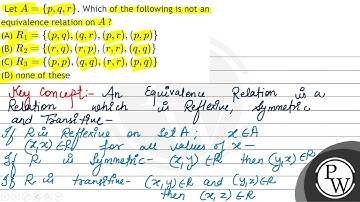 Let A = {p, q, r}. Which of the following is not an
equivalence relation on A ?
(A) R₁ = {(p, q), (q, r), (p, r), (p, p)}
(B) R₂ = {(r, q), (r, p), (r, r), (q, q)}
(C) R₃ = {(p, p), (q, q), (r, r), (p, q)}
(D) none of these
Key concept:- An Equivalence Relation is a
Relation which is Reflexive, Symmetric
and Transitive -
If R is Reflexive on Set A; x∈A
(x,x)∈R for all values of x -
If R is Symmetric - (x,y)∈R then (y,x)∈R
If R is transitive - (x,y)∈R and (y,z)∈R
then (x,z)∈R
PW